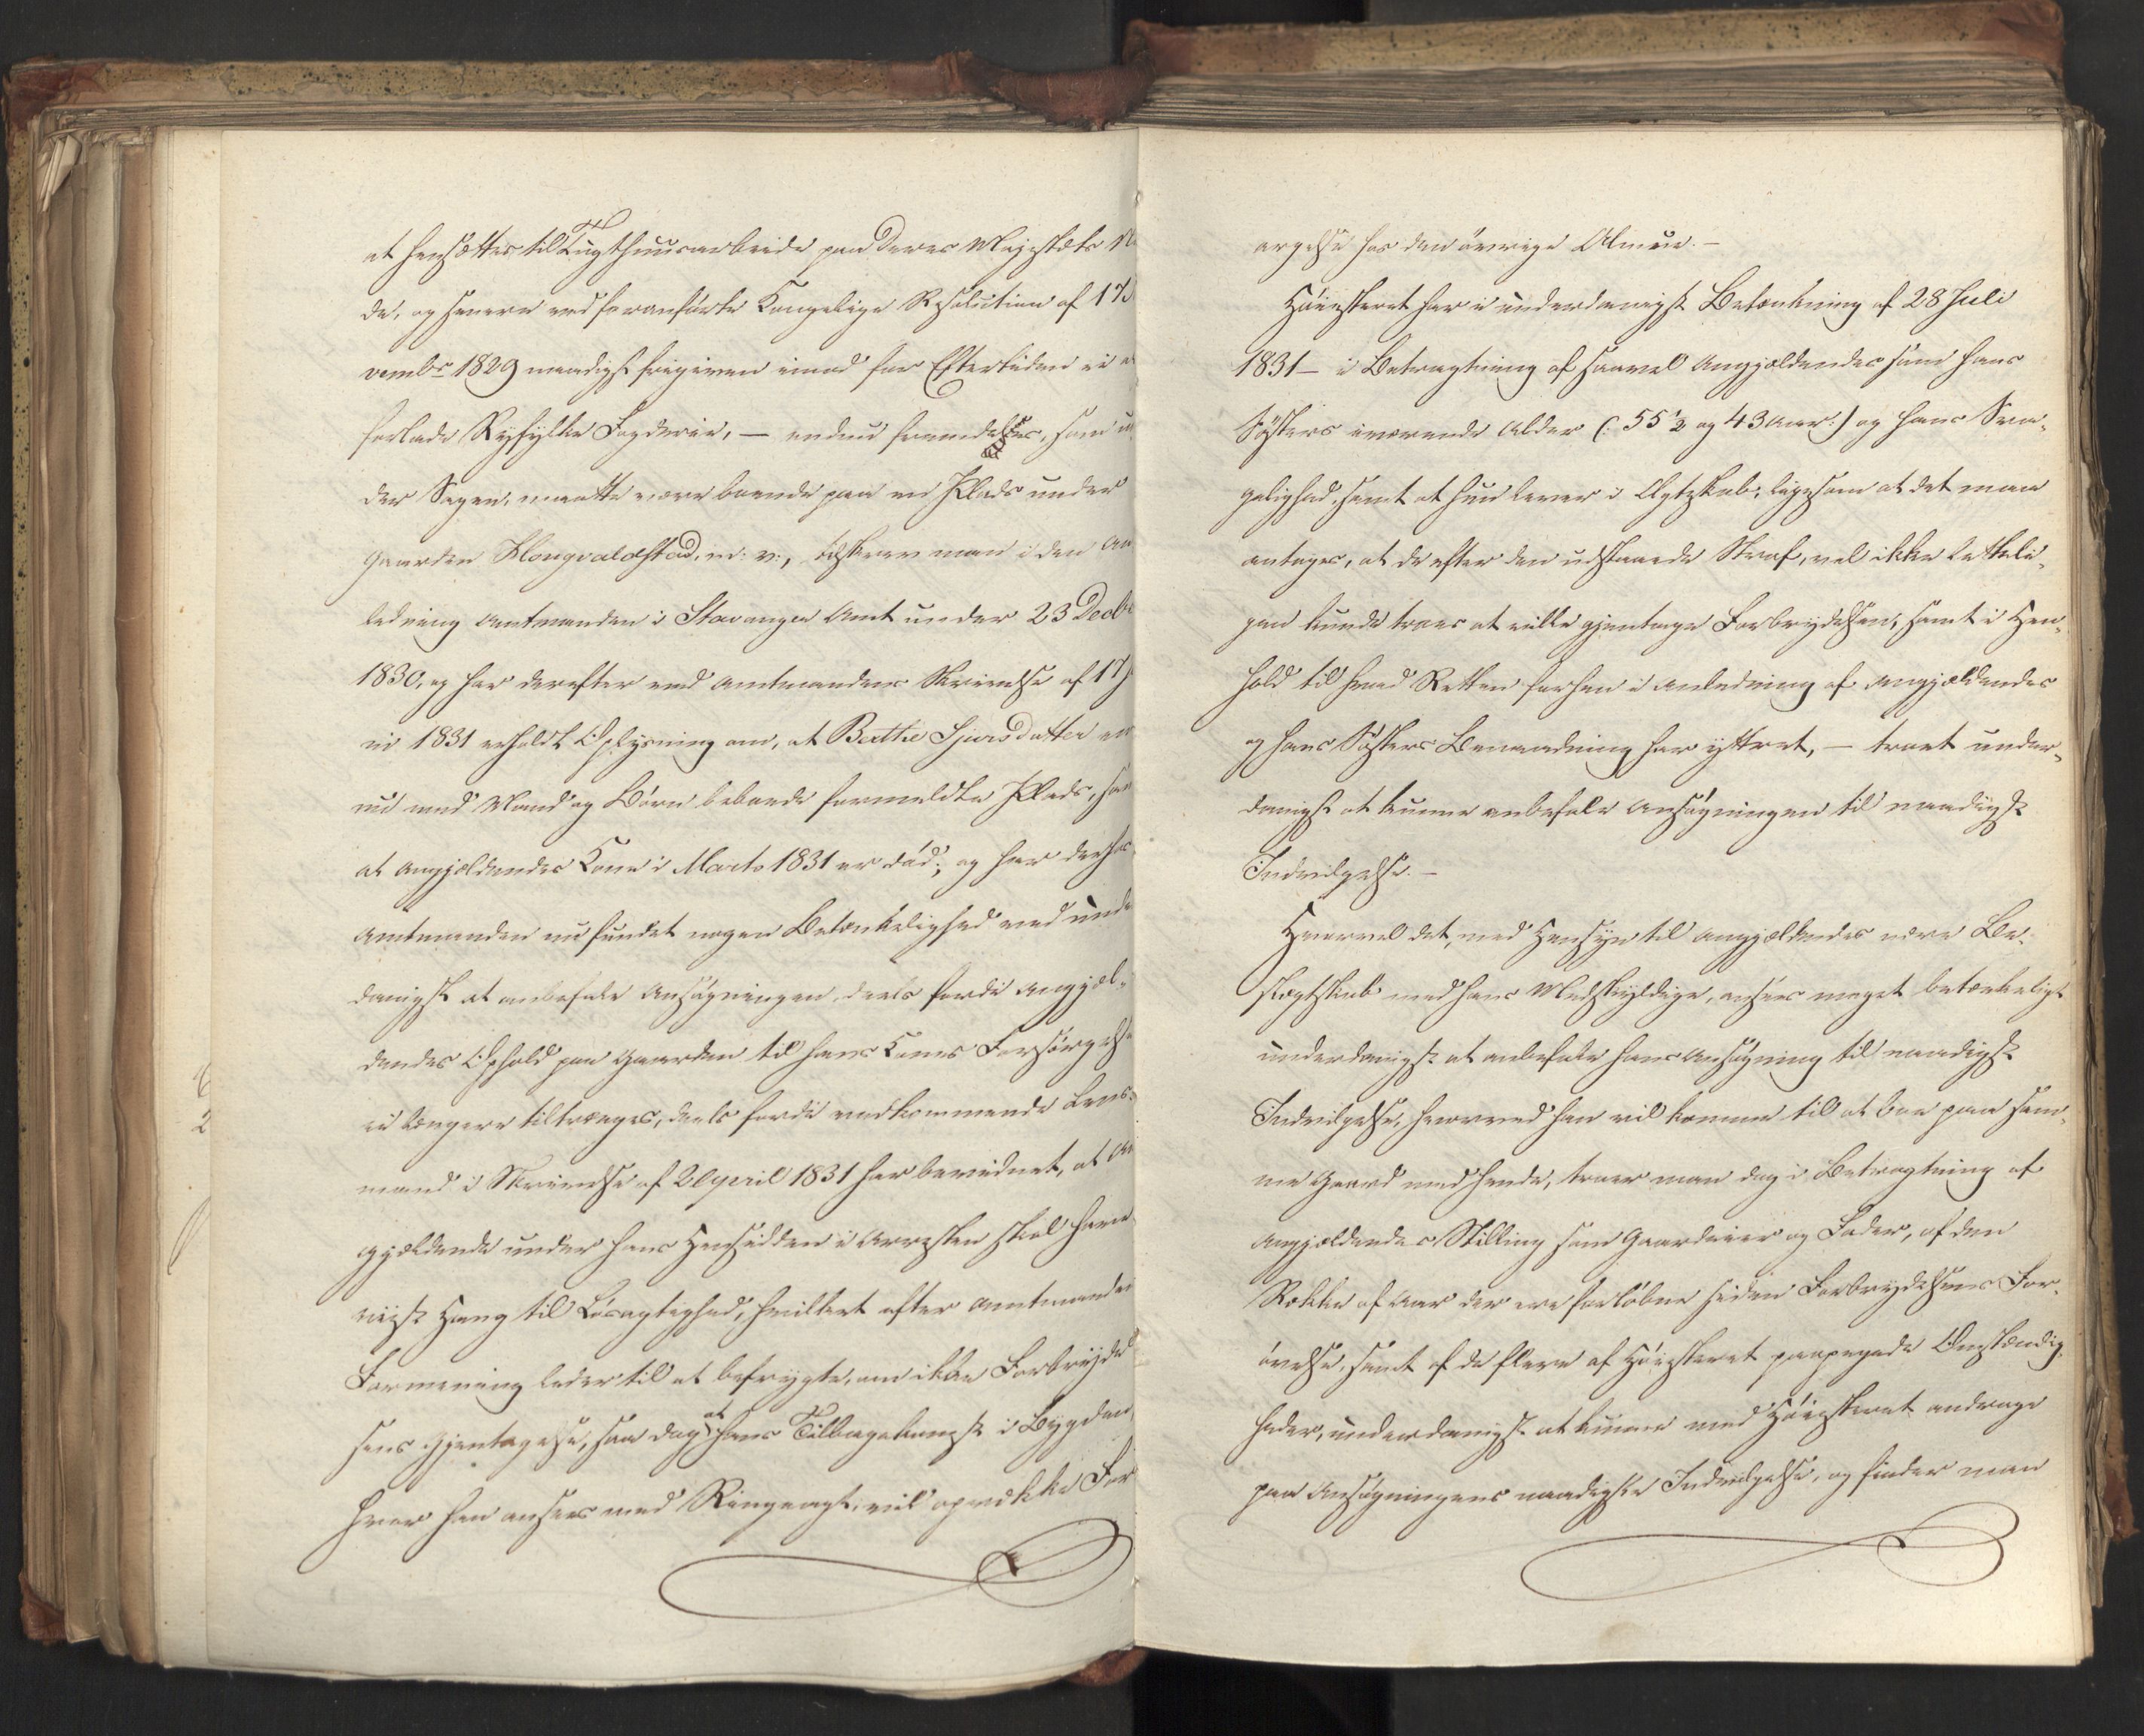 at hensættes til Tugthuusarbeide paa Deres Majestæts
de, og senere ved foranførte Kongelige Resolution af 17
vembr 1829 naadigst frigiven imod for Eftertiden ei
forlade Ryfylke Fogderie, — endnu fremdeles, som
der Sagen, maatte være boende paa en Plads under
Gaarden Hongvaldstad, m: v:, tilskrev man i den An
ledning Amtmanden i Stavanger Amt under 23 Decbr
1830, og har derefter ved Amtmandens Skrivelse af 17
ni 1831 erholdt Oplysning om, at Berthe Sjursdatter
nu med Mand og Børn beboede formeldte Plads,
at Angjældendes Kone i Marts 1831 er død; og har derhos
Amtmanden nu fundet nogen Betænkelighed ved unde
danigst at anbefale Ansøgningen, deels fordi Angjæl-
dendes Ophold paa Gaarden til hans Kones Forsørgelse
ei længere tiltrænges, deels fordi vedkommende Lens-
mand i Skrivelse af 2 April 1831 har bevidnet, at An
gjældende under hans Hensidden i Arresten skal have
viist Hang til Løsagtighed, hvilket efter Amtmandens
Formening leder til at befrygte, om ikke Forbrydel
sens Gjentagelse, saa dog at hans Tilbagekomst i Bygden,
hvor han ansees med Ringeagt, vil opvække For
argelse hos den øvrige Almue. —
Høiesteret har i underdanigst Betænkning af 28 Juli
1831 — i Betragtning af saavel Angjældendes som hans
Søsters nuværende Alder (: 55 1/2 og 43 Aar :) og hans Sva-
gelighed, samt at hun lever i Ægteskab, ligesom at det maa
antages, at de efter den udstaaede Straf, vel ikke letteli-
gen kunde troes at ville gjentage Forbrydelsen, samt i Hen-
hold til hvad Retten forhen i Anledning af Angjældendes
og hans Søsters Benaadning har yttret, — troet under-
danigst at kunne anbefale Ansøgningen til naadigst
Indvilgelse. —
Hvorvel det, med Hensyn til Angjældendes nære Be-
slægtskab med hans Medskyldige, ansees meget betænkeligt
underdanigst at anbefale hans Ansøgning til naadigst
Indvilgelse, hvorved han vil komme til at boe paa sam-
me Gaard med hende, troer man dog i Betragtning af
Angjældendes Stilling som Gaardeier og Fader, af den
Række af Aar der ere forløbne siden Forbrydelsens For-
øvelse, samt af de flere af Høiesteret paapegede Omstændig-
heder, underdanigst at kunne med Høiesteret andrage
paa Ansøgningens naadigste Indvilgelse, og finder man